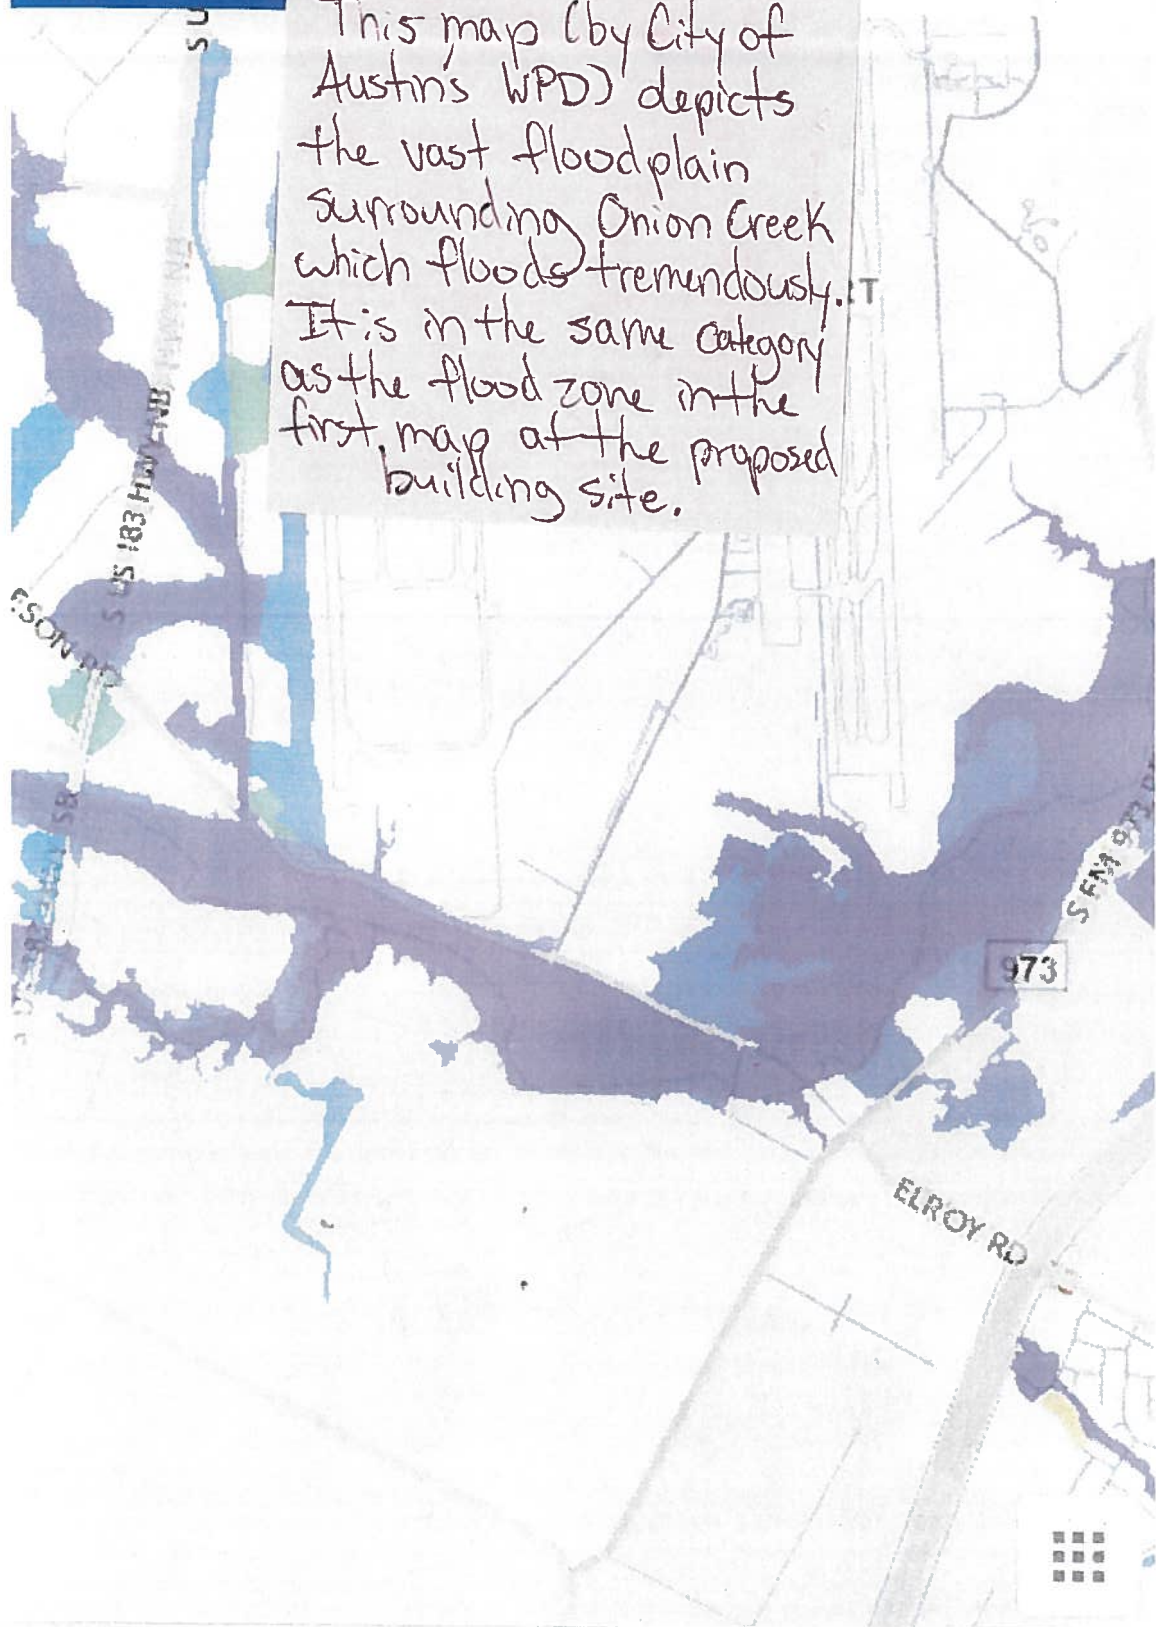 S U
This map (by City of
Austin's WPD) depicts
the vast floodplain
surrounding Onion Creek
which floods tremendously.
It is in the same category
as the flood zone in the
first map at the proposed
building site.
T
S US 183 HWY NB
ESON RD
SB
S FM 973 RD
973
ELROY RD